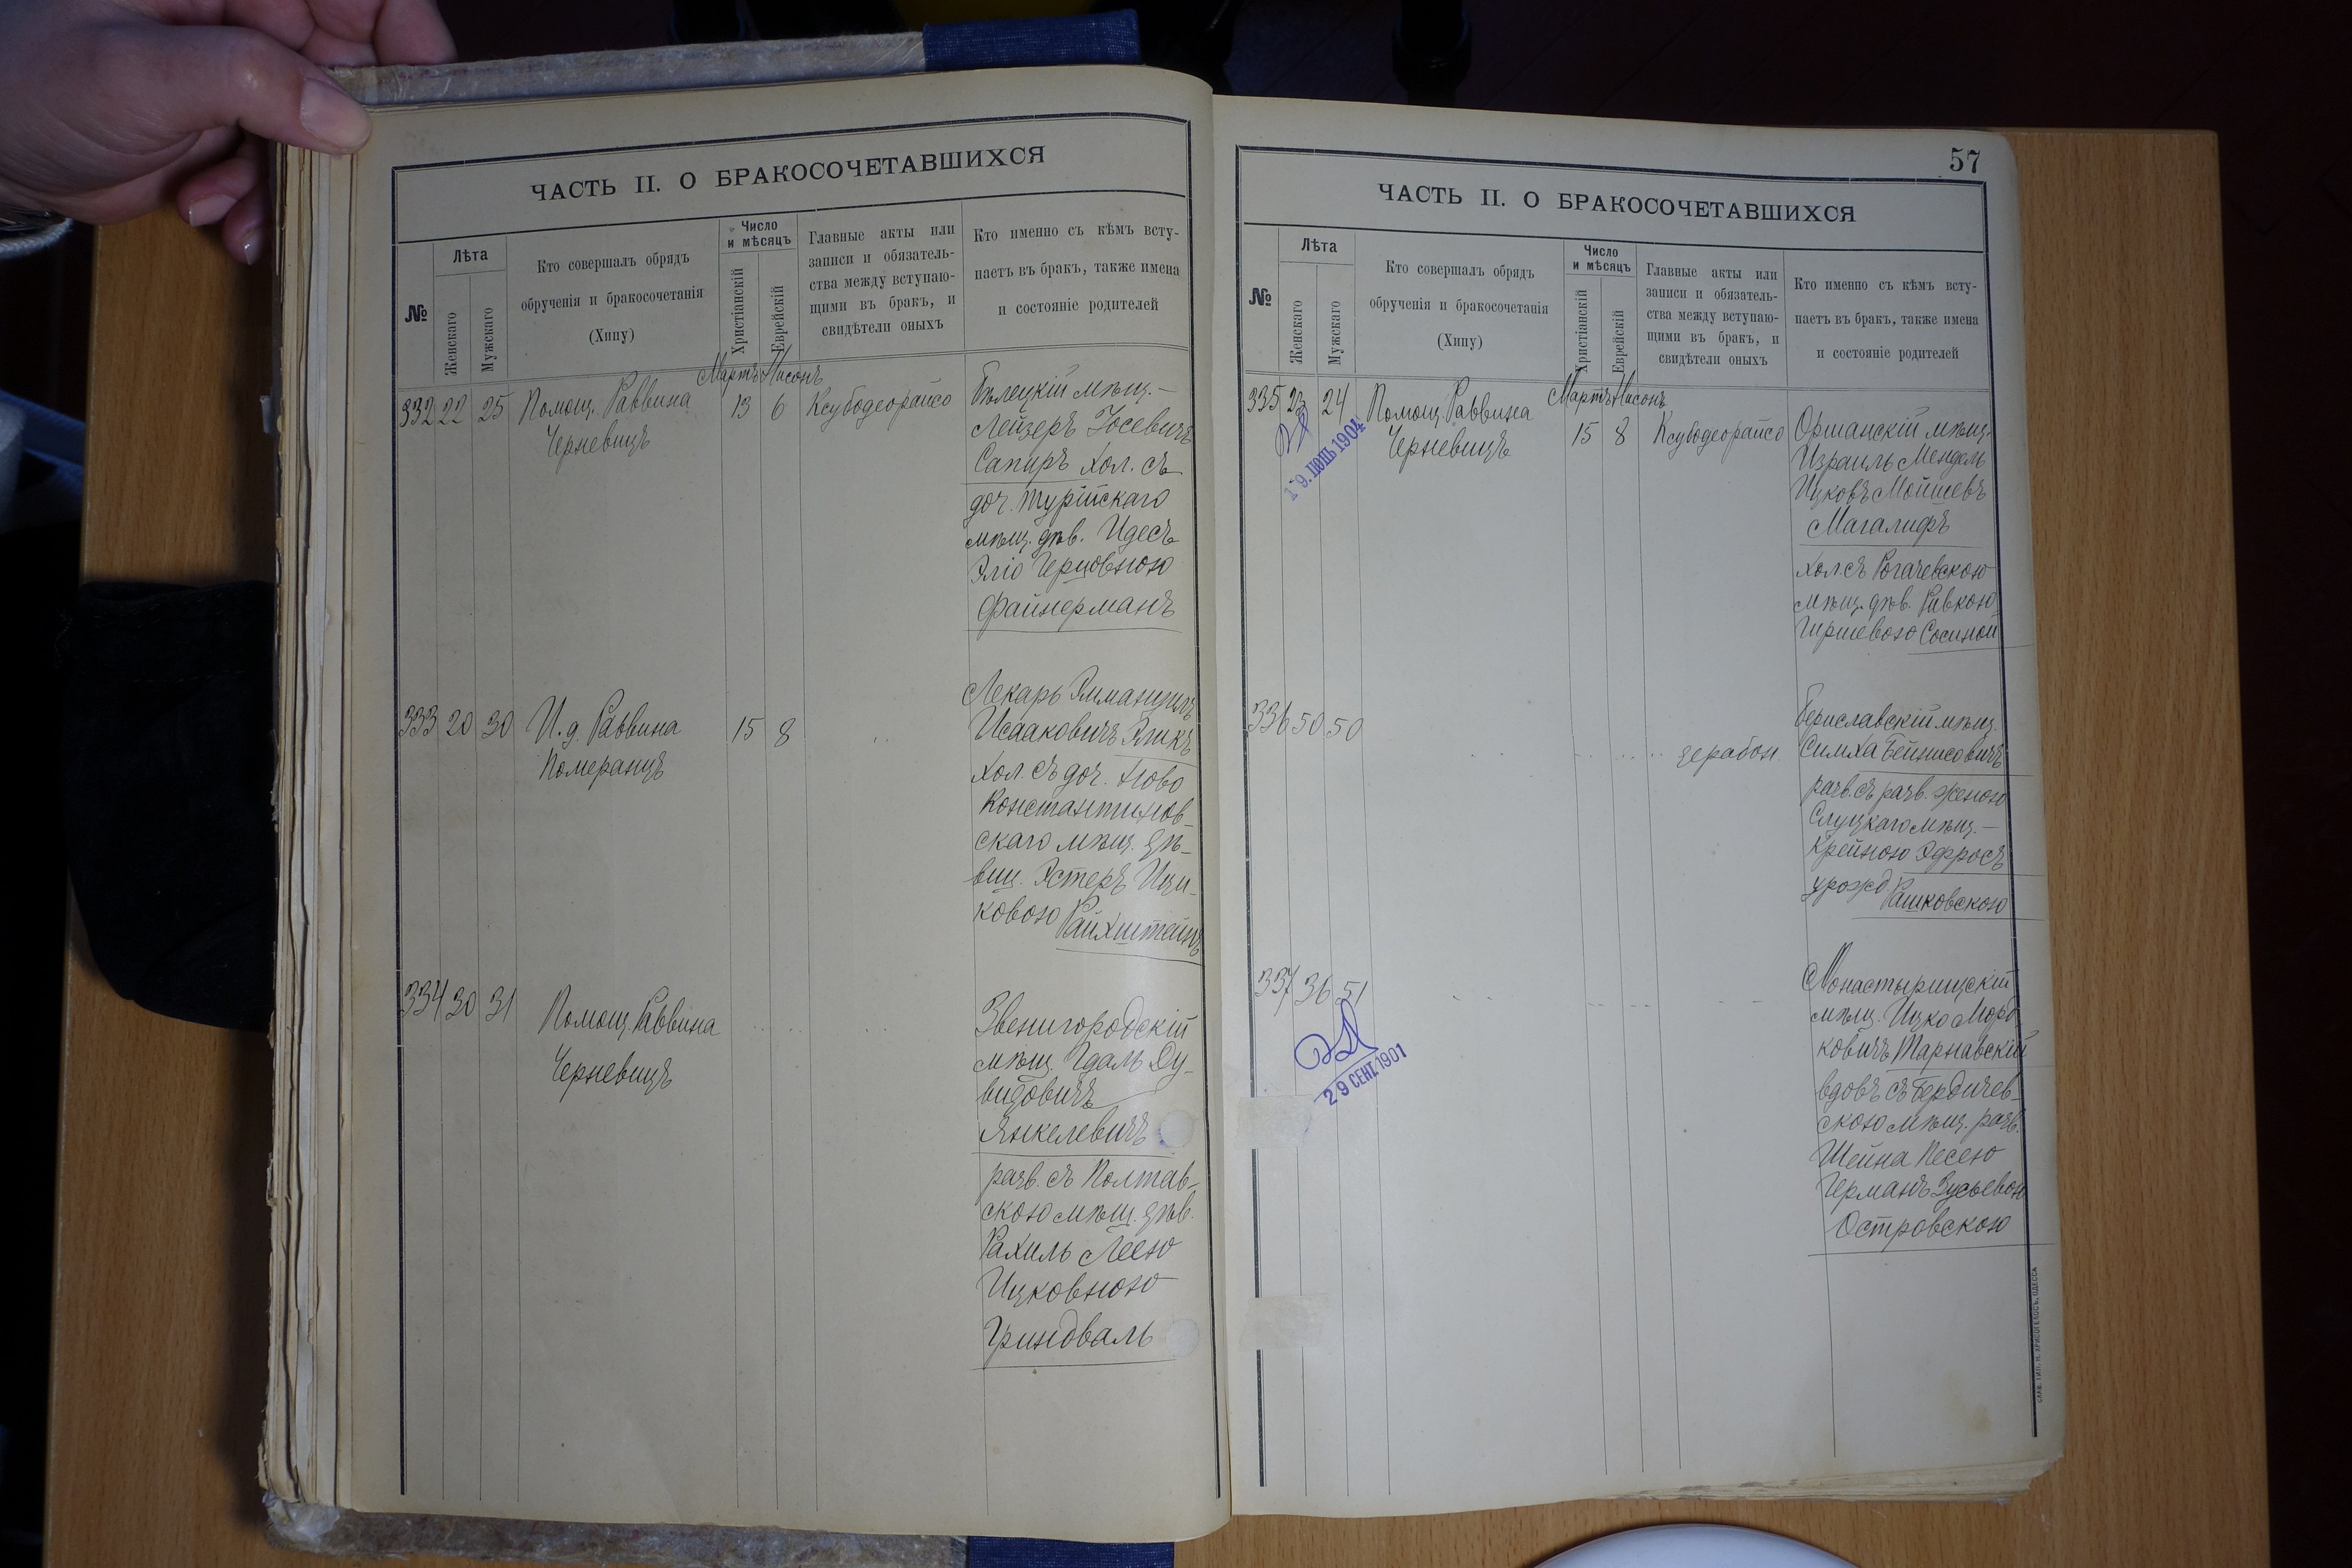 ЧАСТЬ II. О БРАКОСОЧЕТАВШИХСЯ
№
Лѣта
Женскаго
Мужскаго
Кто совершалъ обрядъ
обрученія и бракосочетанія
(Хипу)
Число
и мѣсяцъ
Христіанскій
Еврейскій
Главные акты или
записи и обязатель-
ства между вступаю-
щими въ бракъ, и
свидѣтели оныхъ
Кто именно съ кѣмъ всту-
паетъ въ бракъ, также имена
и состояніе родителей
Мартъ Нисонъ
332 22 25 Помощ. Раввина 13 6 Ксубодеорайсо
Черневицъ
Бѣлецкій мѣщ.-
Лейзеръ Іосевичъ
Сапиръ хол. съ
доч. Турійскаго
мѣщ. дѣв. Идесъ
Эліо Герцовною
Файнерманъ
333 20 30 И. д. Раввина 15 8
Померанцъ
Лекарь Эммануилъ
Исааковичъ
хол. съ доч. Ново
Константинов-
скаго мѣщ. дѣ-
виц. Эстеръ Ици-
ковою Райхштейнъ
334 30 31 Помощ. Раввина
Черневицъ
Звенигородскій
мѣщ. Гдаль Ду-
видовичъ
Янкелевичъ
разв. съ Полтав-
скою мѣщ. дѣв.
Рахиль Леею
Ицковною
Гриндваль
57
ЧАСТЬ II. О БРАКОСОЧЕТАВШИХСЯ
№
Лѣта
Женскаго
Мужскаго
Кто совершалъ обрядъ
обрученія и бракосочетанія
(Хипу)
Число
и мѣсяцъ
Христіанскій
Еврейскій
Главные акты или
записи и обязатель-
ства между вступаю-
щими въ бракъ, и
свидѣтели оныхъ
Кто именно съ кѣмъ всту-
паетъ въ бракъ, также имена
и состояніе родителей
Мартъ Нисонъ
335 23 24 Помощ. Раввина 15 8 Ксубодеорайсо
Черневицъ
19. ІЮНЬ 1904
Оршанскій мѣщ.
Израиль Мендель
Ицковъ Мойшевъ
Магалифъ
хол съ Рогачевскою
мѣщ. дѣв. Ривкою
Гиршевою Сосиной
336 50 50 дерабон.
Бериславскій мѣщ.
Симха Бейнисовичъ
разв. съ разв. женою
Слуцкаго мѣщ.-
Крейною Эфросъ
урожд. Рашковскою
337 36 51
29 СЕНТ. 1901
Монастырищскій
мѣщ. Ицко Морд-
ковичъ Тарнавскій
вдовъ съ Бердичев-
скою мѣщ. разв.
Шейна Песею
Германъ Зусьевою
Островскою
СЛАВ. ТИП. Н. ХРИСОГЕЛОСЪ, ОДЕССА